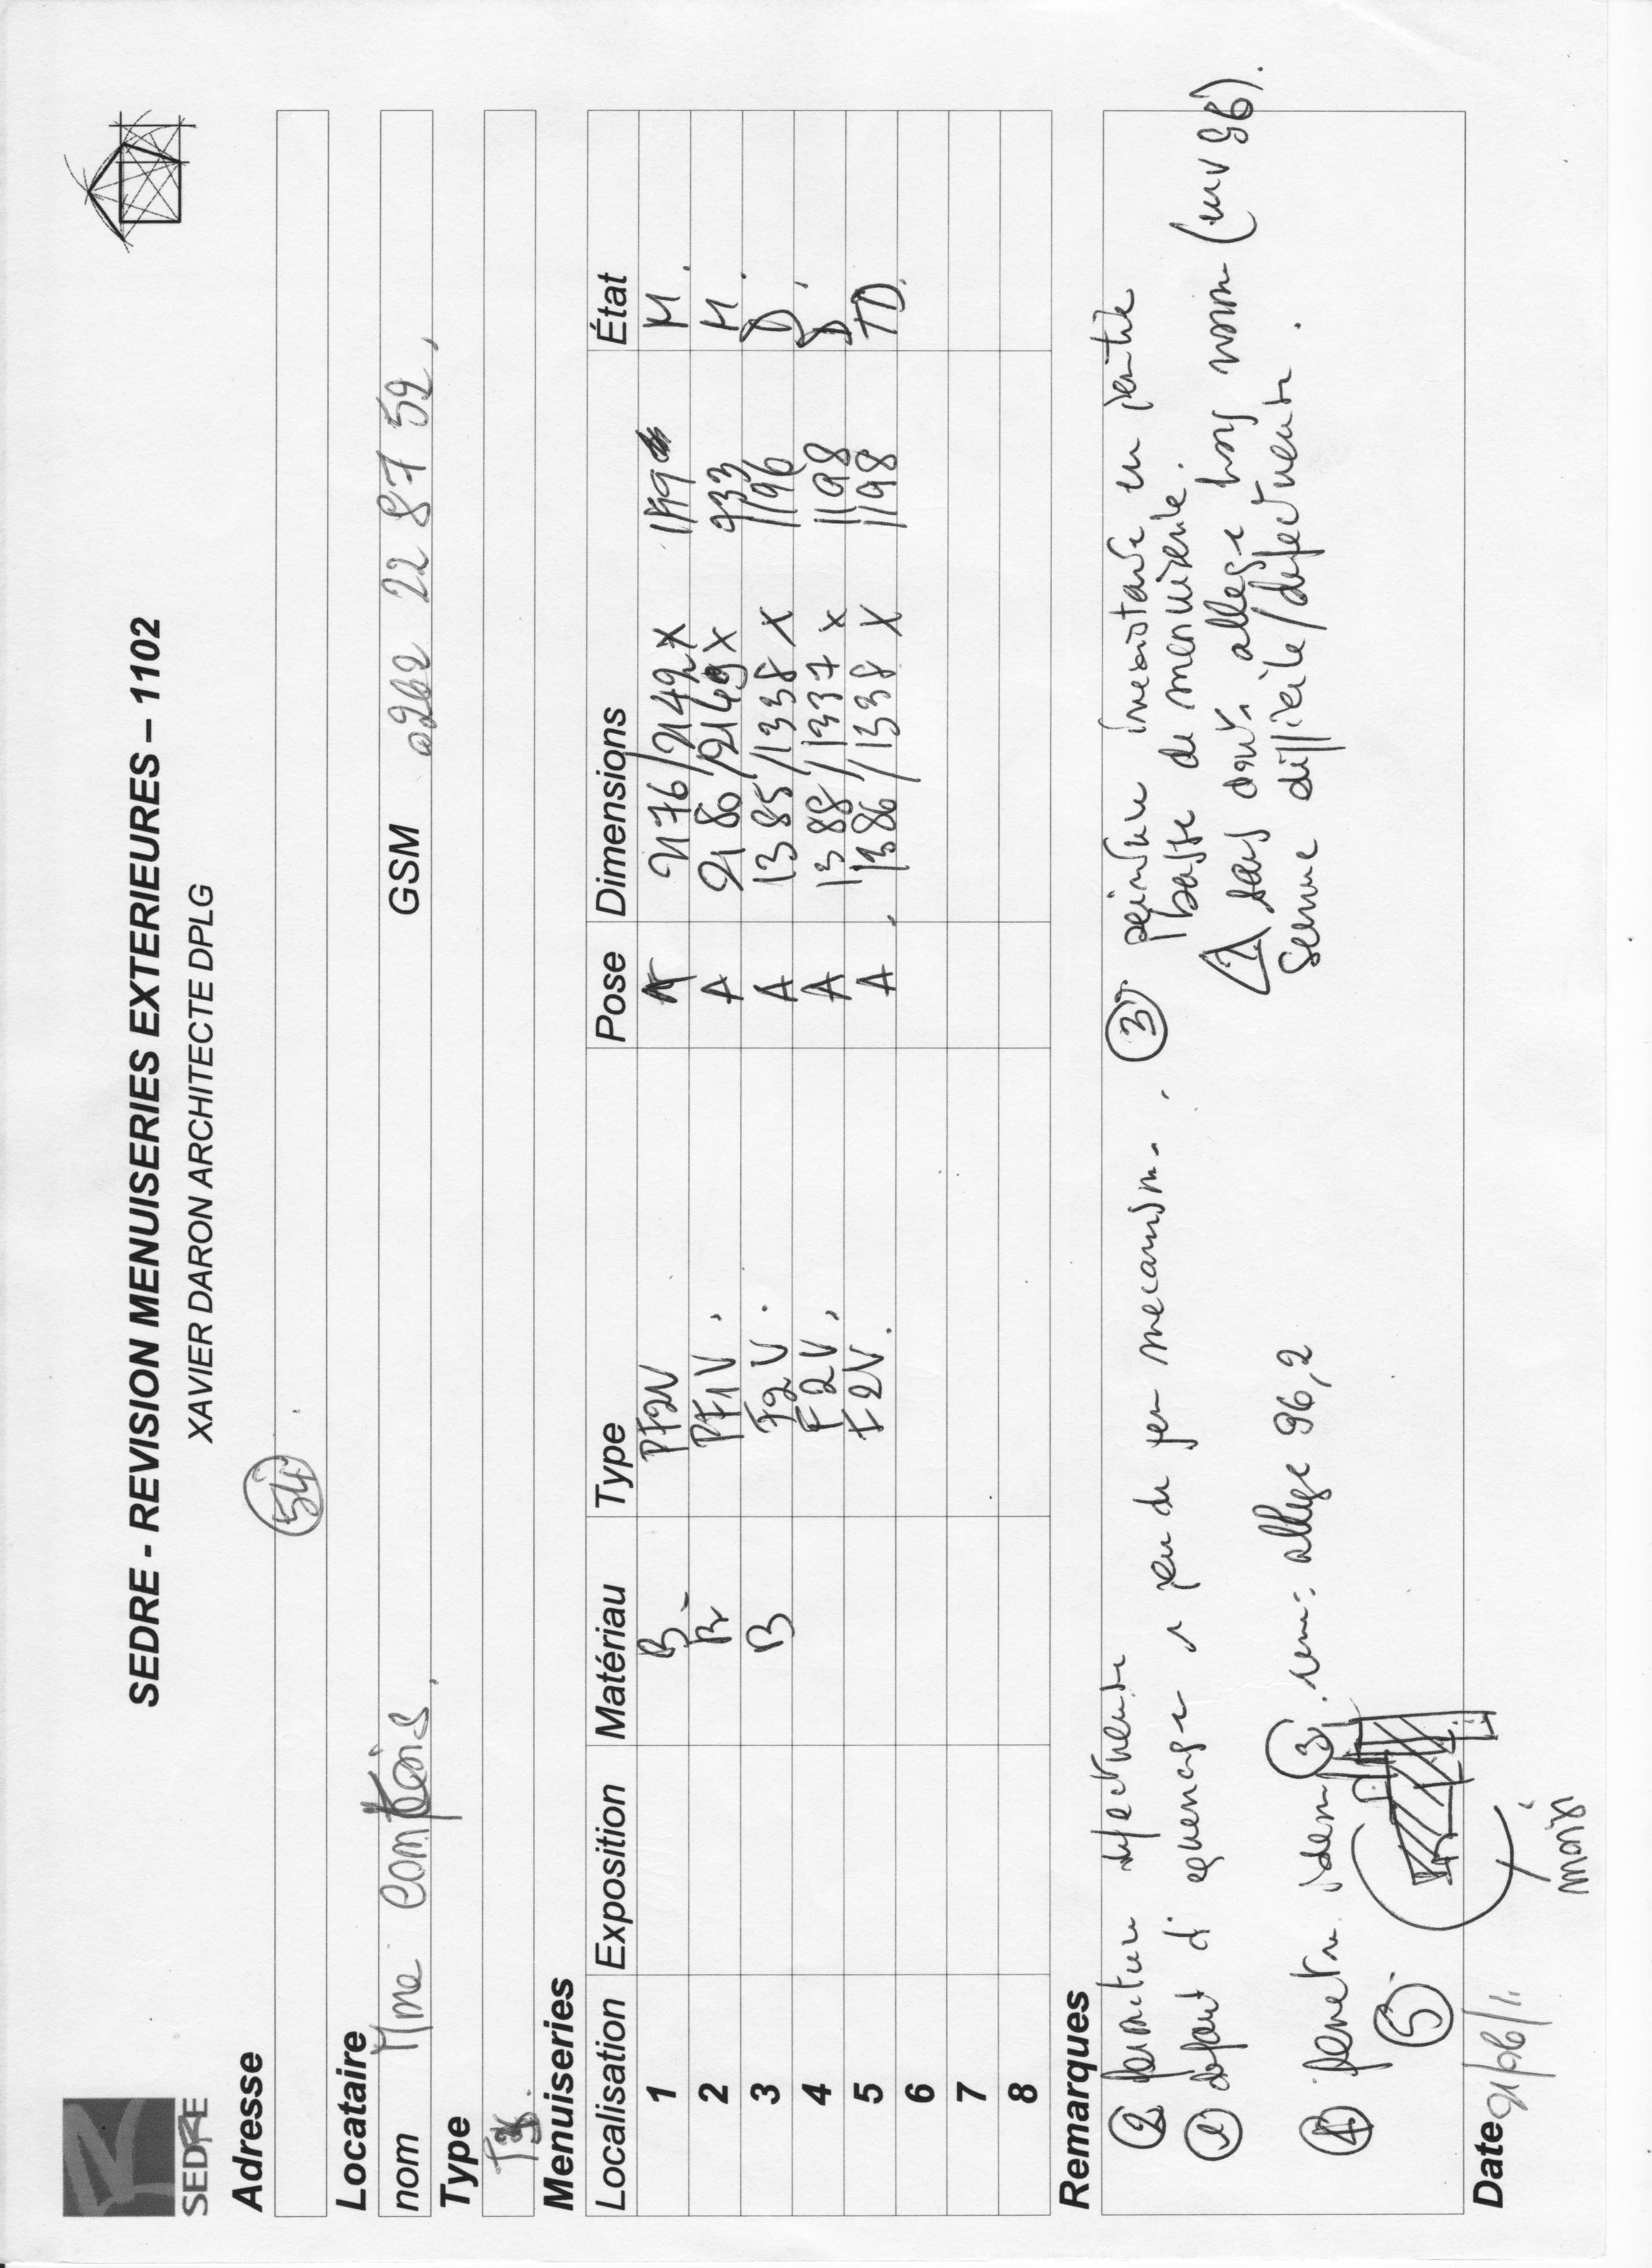 SEDRE
SEDRE - REVISION MENUISERIES EXTERIEURES – 1102
XAVIER DARON ARCHITECTE DPLG
Adresse
54
Locataire
nom Mme GSM 0262 22 87 52
Type
Menuiseries
Localisation Exposition Matériau Type Pose Dimensions État
1 B PF2V A 2176/2142 X 1199 M.
2 B PF1V. A 2180/2149 X 933 M.
3 B F2V. A 1385/1338 X 1196 D.
4 F2V, A 1388/1337 X 1198 D
5 F2V. A. 1386/1338 X 1198 TD.
6
7
8
Remarques
2 fermeture defectueuse
1 defaut d'equerrage peu de jeu mecanism.
3 peinture inexistante en partie
basse de menuiserie.
allege hors norm (env 96).
Serrure difficile/defectueuse.
4 fenetre idem 3. rem: allege 96,2
5
moisi
Date 21/06/11